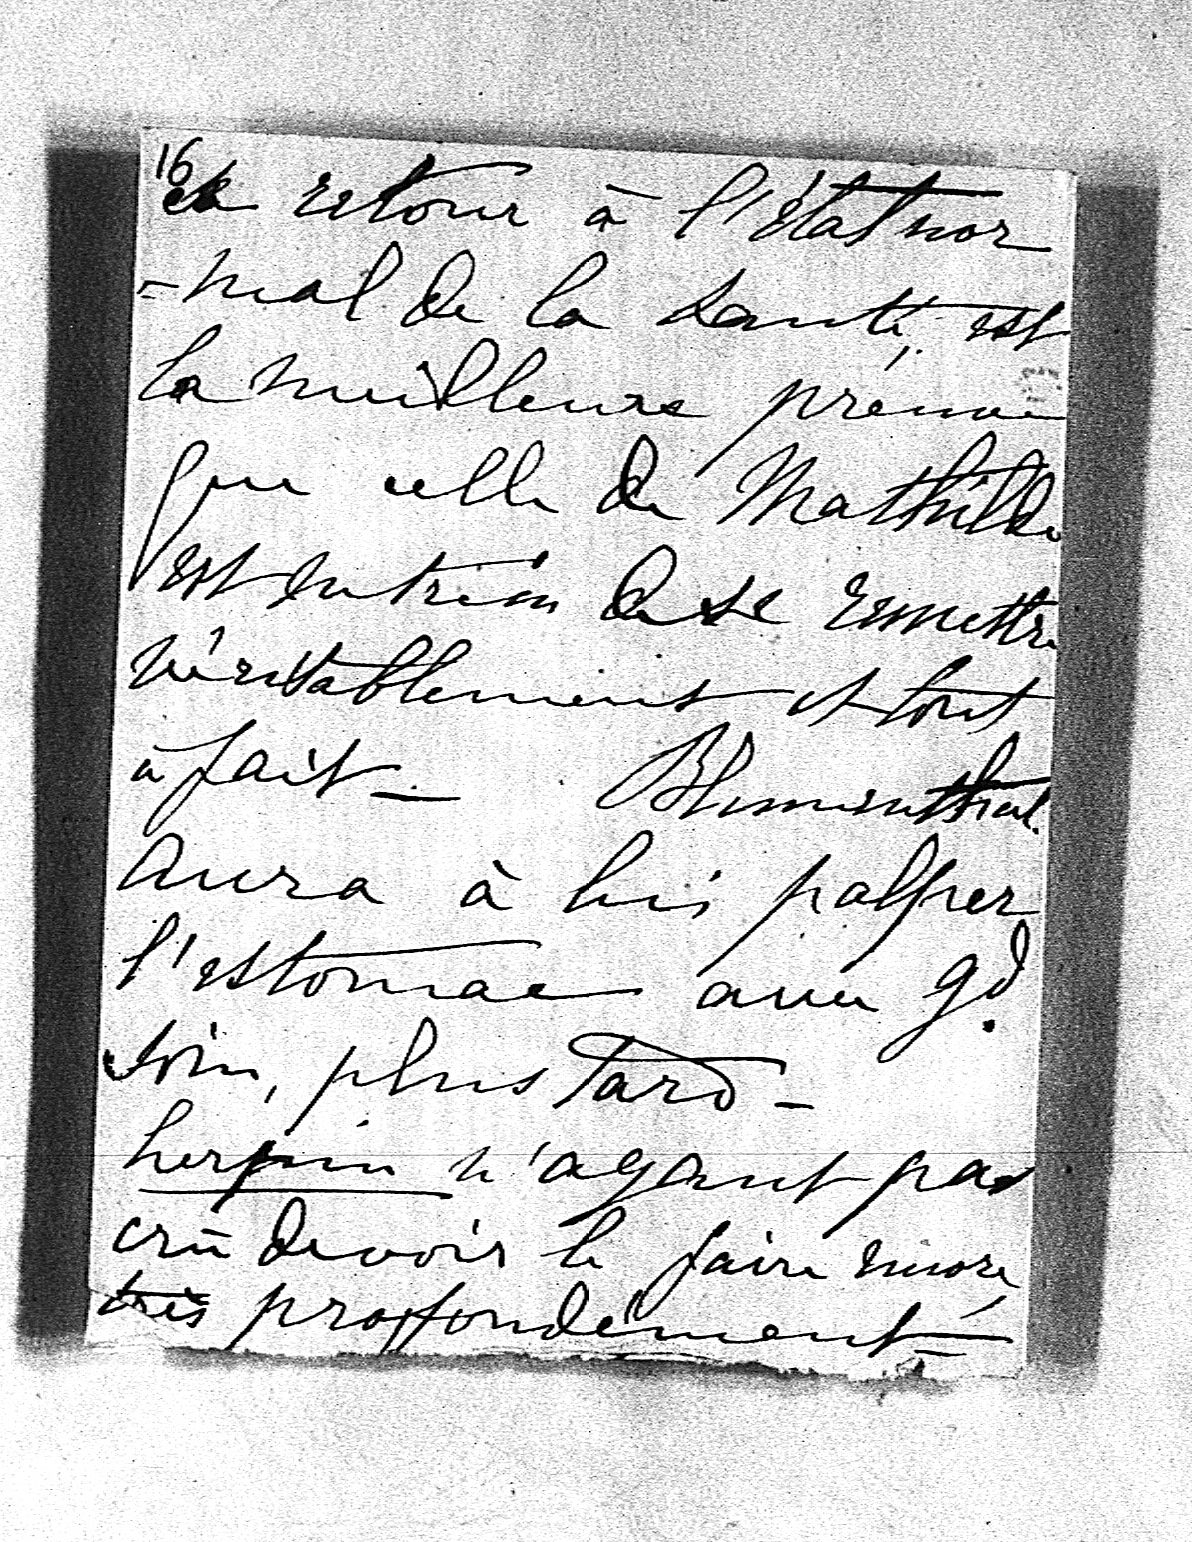 16
ce retour à l'état nor
=mal de la santé, est
la meilleure préuve
que celle de Mathilde
est entrain de se remettre
véritablement et tout
à fait – Blumenthal
aura à lui palper
l'estomac avec gd.
soin, plus tard –
herpin n'ayant pas
crû devoir le faire encore
très profondément –